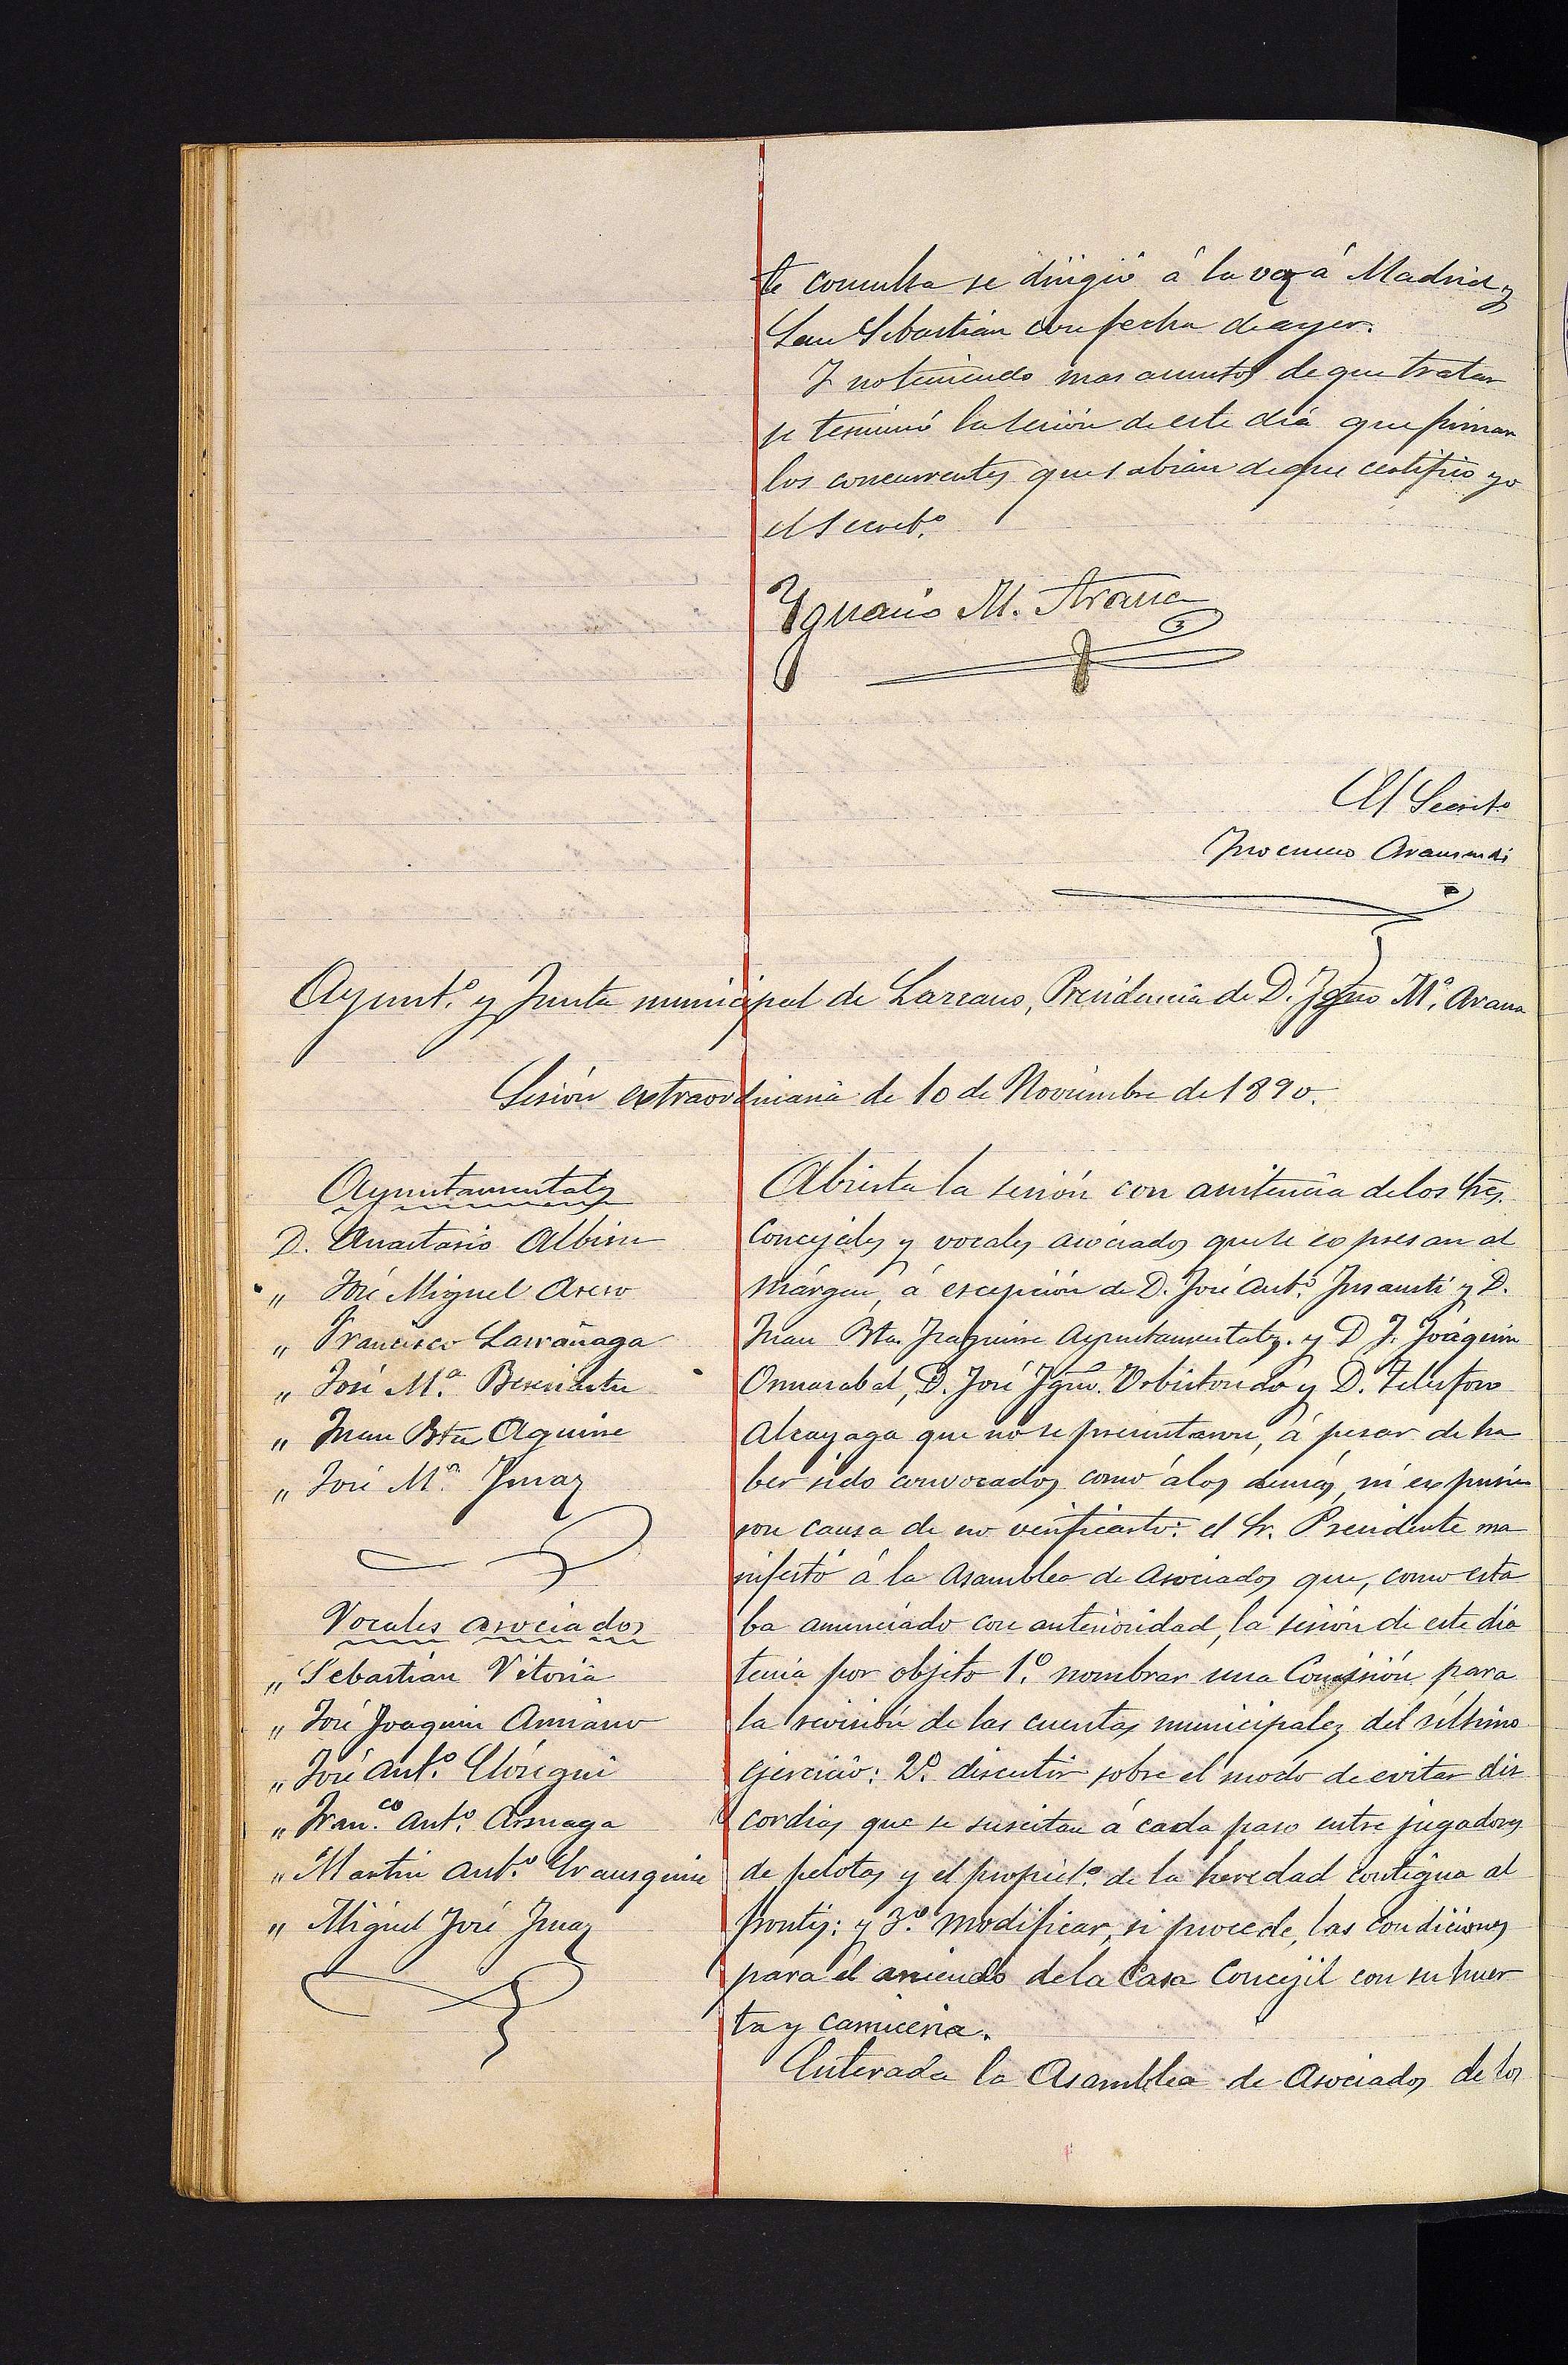 te consulta se dirigió á la vez á Madrid y
San Sebastián con fecha de ayer.
Y no teniendo mas asuntos de que tratar
se terminó la sesión de este dia que firman
los concurrentes que sabian de que certifico yo
el Secret.º
Ygnacio M. Arana
El Secret.º
Inocencio Aramendi
Ayunt.º y Junta municipal de Lazcano, Presidencia de D. Igno M.ª Arana
Sesión extraordinaria de 10 de Noviembre de 1890.
Ayuntamentales
D. Anastasio Albisu
" José Miguel Aseso
" Francisco Larrañaga
" José M.ª
" Juan Bta Aguirre
" José M.ª Imaz
Vocales asociados
" Sebastián Vitoria
" José Joaquin Amiano
" José Ant.º Elósegui
" Fran.co Ant.º Arsuaga
" Martin Ant.º Erausquin
" Miguel José Imaz
Abierta la sesión con asistencia de los Sres.
Concejales y vocales asociados que se expresan al
márgen, á escepción de D. José Ant.º Insausti y D.
Juan Bta. Izaguirre Ayuntamentales. y D J. Joáquin
Ormazabal, D. José Igno. Urbistondo y D. Telesforo
Alcayaga que no se presentaron, á pesar de ha
ber sido convocados como á los demás, ni expusie
ron causa de no verificarlo: el Sr. Presidente ma
nifestó á la Asamblea de Asociados que, como esta
ba anunciado con anterioridad, la sesión de este dia
tenia por objeto 1.º nombrar una Comisión para
la revisión de las cuentas municipales del último
ejercicio: 2.º discutir sobre el modo de evitar dis
cordias que se suscitan á cada paso entre jugadores
de pelotas y el propiet.º de la heredad contigua al
frontis: y 3.º modificar, si procede, las condiciones
para el arriendo de la Casa Concejil con su huer
ta y carniceria.
Enterada la Asamblea de Asociados de los